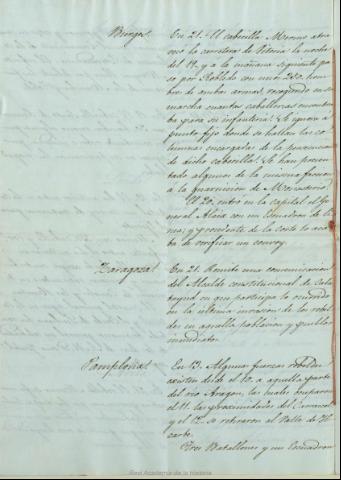 Burgos. En 21. El cabecilla Merino atra-
vesó la carretera de Vitoria la noche
del 19, y a la mañana siguiente pa-
só por Robledo con unos 250 hom-
bres de ambas armas, recogiendo en su
marcha cuantas caballerias encontra-
ba para su infanteria. Se ignora a
punto fijo donde se hallan las co-
lumnas encargadas de la persecucion
de dicho cabecilla. Se han presen-
tado algunos de la misma faccion
a la guarnicion de Monasterio.
El 20, entró en la capital el Ge-
neral Alava con un Escuadron de li-
nea; y procedente de la corte lo aca-
ba de verificar un convoy.
Zaragoza. En 21. Remite una comunicacion
del Alcalde constitucional de Cala-
tayud en que participa lo ocurrido
en la ultima invasion de los rebel-
des en aquella poblacion y pueblos
inmediatos.
Pamplona. En 13. Algunas fuerzas rebeldes
existen desde el 10. a aquella parte
del rio Aragon, las cuales ocuparon
el 11. las proximidades del Carrascal
y el 12. se retiraron al Valle de
Tres Batallones y un Escuadron
Real Academia de la Historia